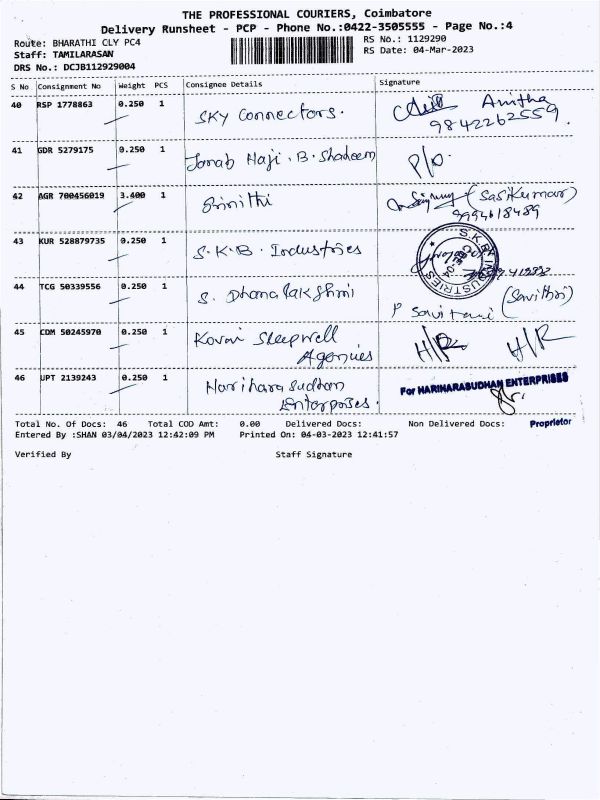 THE PROFESSIONAL COURIERS, Coimbatore
Delivery Runsheet - PCP - Phone No.:0422-3505555 - Page No.:4
Route: BHARATHI CLY PC4 RS No.: 1129290
Staff: TAMILARASAN RS Date: 04-Mar-2023
DRS No.: DCJB112929004
S No Consignment No Weight PCS Consignee Details Signature
40 RSP 1778863 0.250 1 SKY Connectors. Anitha
9842262559.
41 GDR 5279175 0.250 1 Janab Haji . B. Shadeem P/o.
42 AGR 700456019 3.400 1 Srinithi (Sasikumar)
9994618489
43 KUR 528879735 0.250 1 S.K.B. Industries S.K.B INDUSTRIES
44 TCG 50339556 0.250 1 S. Dhanalakshmi (Savithri)
45 CDM 50245970 0.250 1 Kovai Sleepwell H/R H/R
Agencies
46 UPT 2139243 0.250 1 Harihara Sudhan For HARIHARASUDHAN ENTERPRISES
Enterprises.
Proprietor
Total No. Of Docs: 46 Total COD Amt: 0.00 Delivered Docs: Non Delivered Docs:
Entered By :SHAN 03/04/2023 12:42:09 PM Printed On: 04-03-2023 12:41:57
Verified By Staff Signature